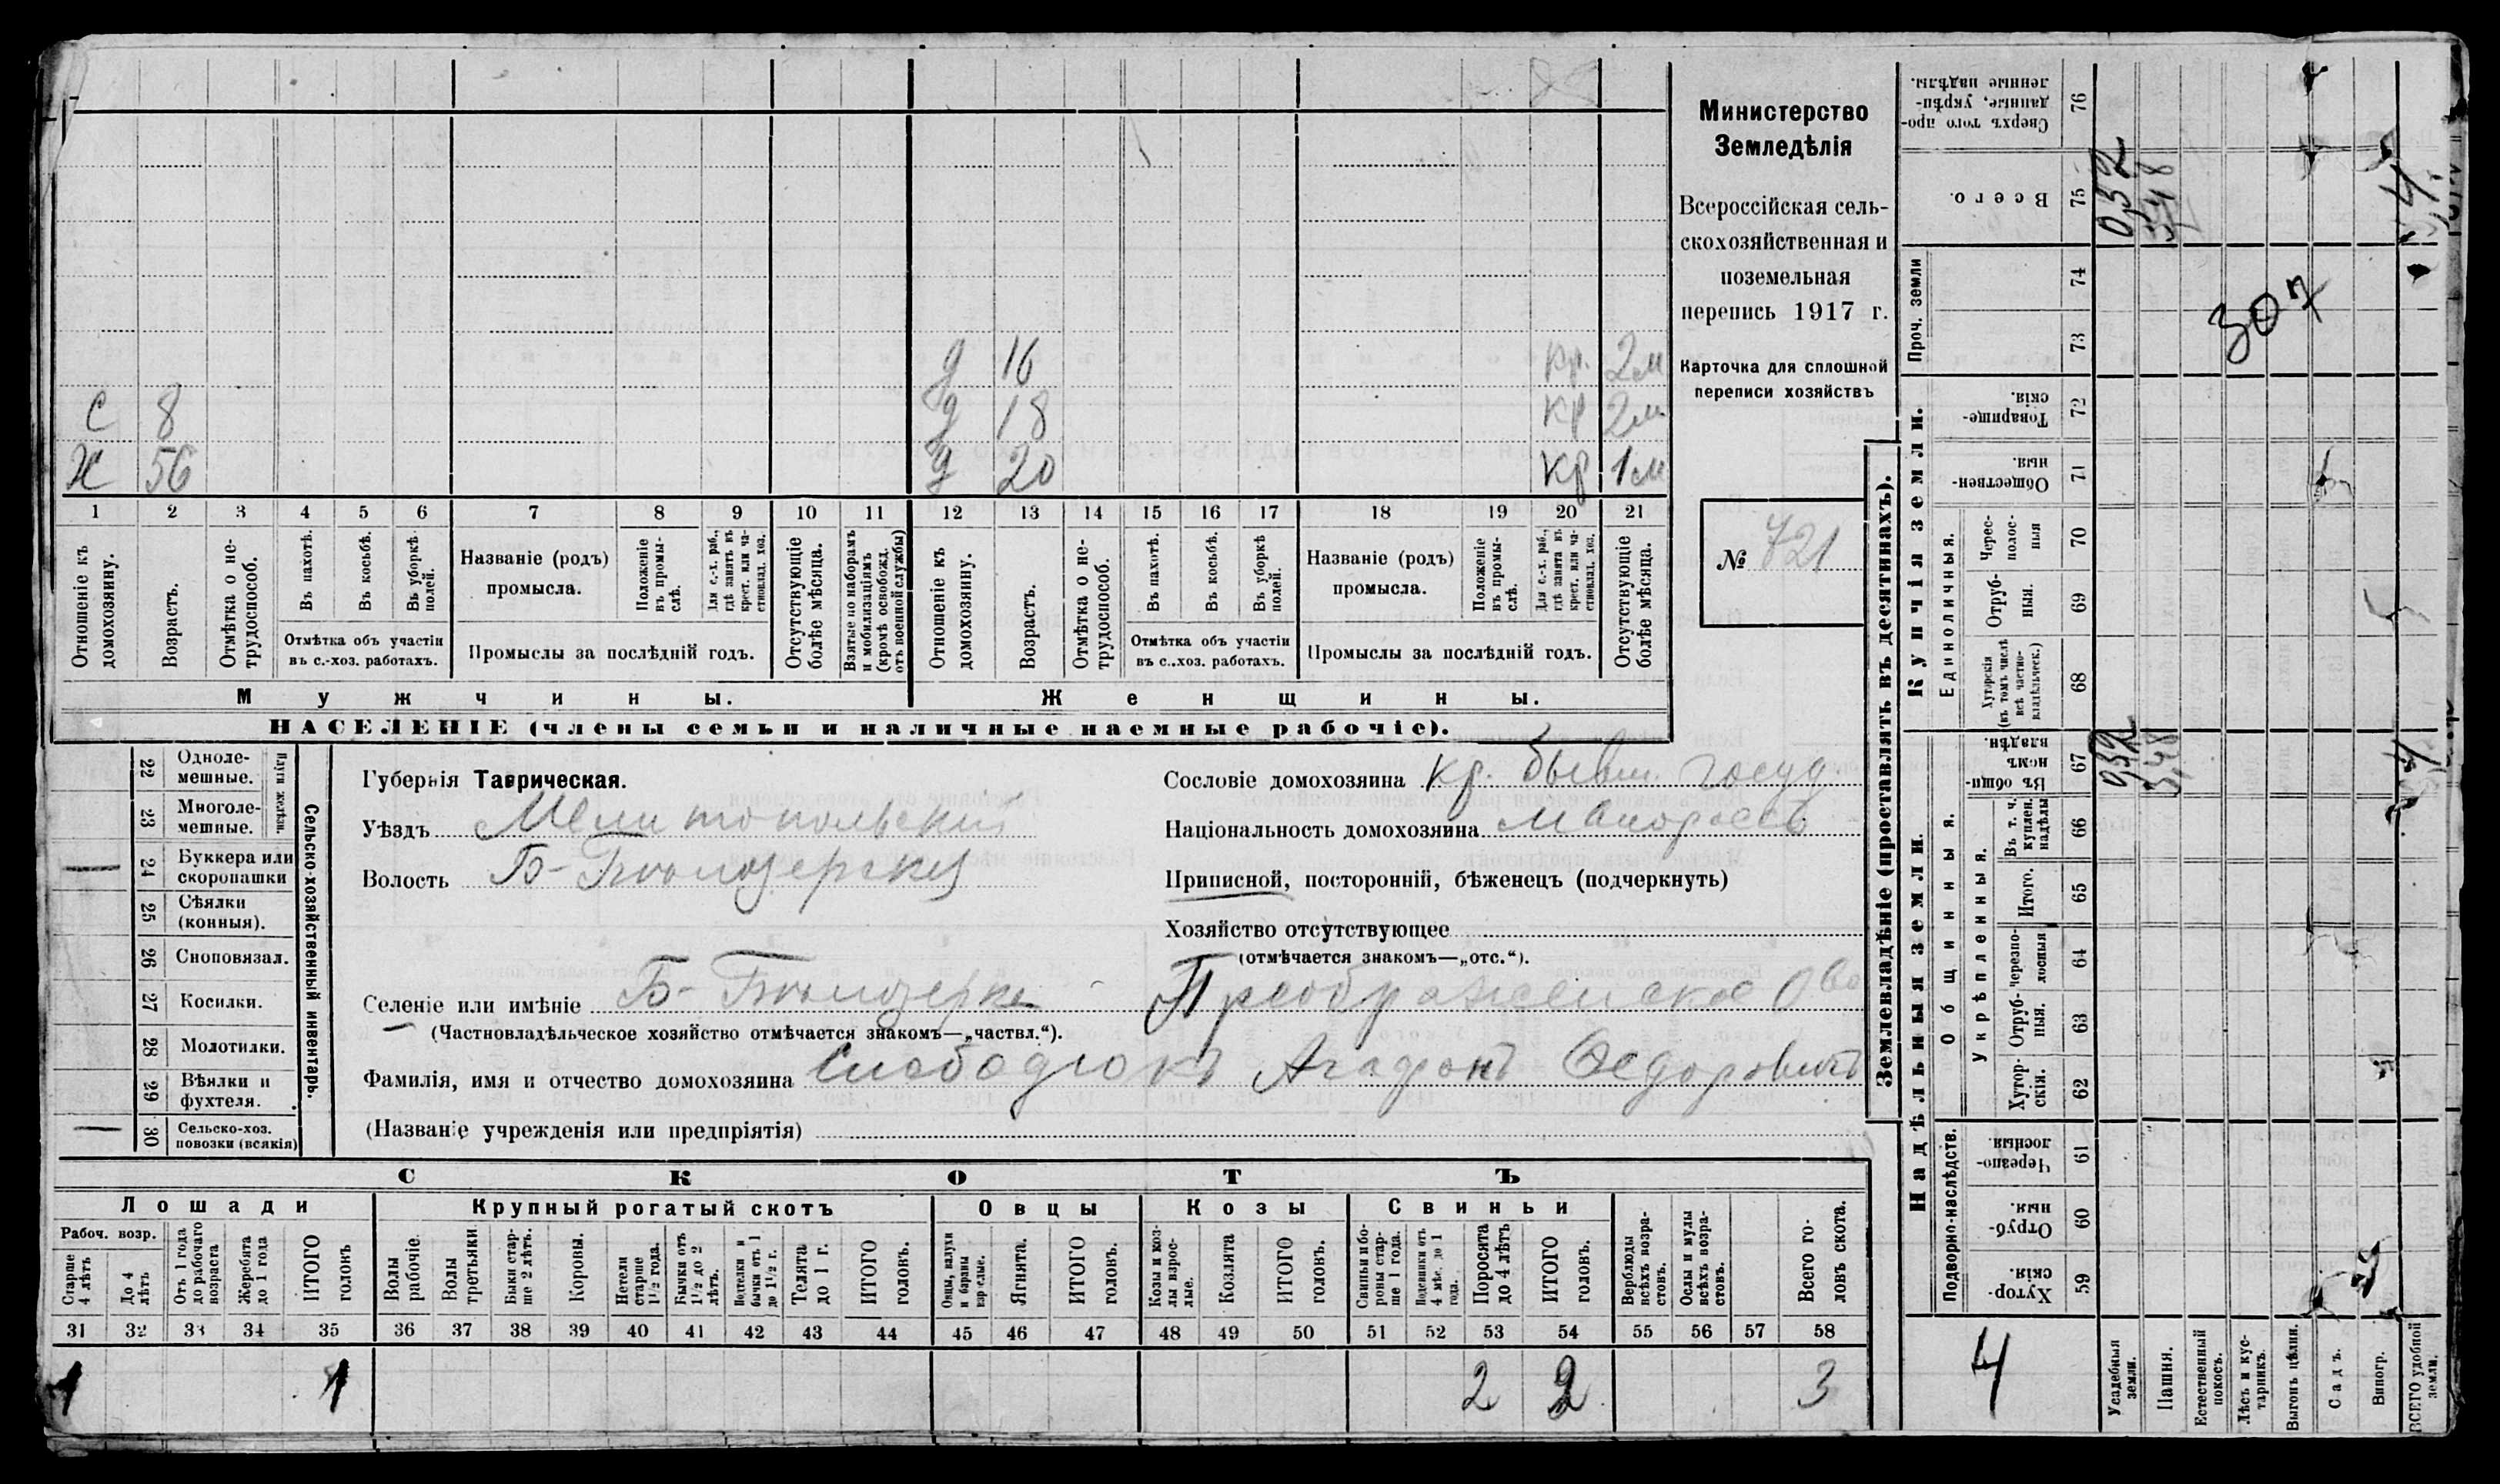 С 8
Х 56
д 16 кр. 2м
д 18 кр 2м
д 20 кр 1м
1 2 3 4 5 6 7 8 9 10 11 12 13 14 15 16 17 18 19 20 21
Отношеніе къ домохозяину.
Возрастъ.
Отмѣтка о нетрудоспособ.
Въ пахотѣ.
Въ косьбѣ.
Въ уборкѣ полей.
Отмѣтка объ участіи
въ с.-хоз. работахъ.
Названіе (родъ)
промысла.
Положеніе въ промыслѣ.
Для с.-х. раб., гдѣ занятъ въ крест. или частновлад. хоз.
Промыслы за послѣдній годъ.
Отсутствующіе болѣе мѣсяца.
Взятые по наборамъ и мобилизаціямъ (кромѣ освобожд. отъ военной службы)
Отношеніе къ домохозяину.
Возрастъ.
Отмѣтка о нетрудоспособ.
Въ пахотѣ.
Въ косьбѣ.
Въ уборкѣ полей.
Отмѣтка объ участіи
въ с.-хоз. работахъ.
Названіе (родъ)
промысла.
Положеніе въ промыслѣ.
Для с.-х. раб., гдѣ занята въ крест. или частновлад. хоз.
Промыслы за послѣдній годъ.
Отсутствующіе болѣе мѣсяца.
Мужчины.
Женщины.
НАСЕЛЕНІЕ (члены семьи и наличные наемные рабочіе).
Министерство
Земледѣлія
Всероссійская сель-
скохозяйственная и
поземельная
перепись 1917 г.
Карточка для сплошной
переписи хозяйствъ
№ 721
22 Одноле-
мешные.
23 Многоле-
мешные.
Плуги желѣзн.
24 Буккера или
скоропашки
25 Сѣялки
(конныя).
26 Сноповязал.
27 Косилки.
28 Молотилки.
29 Вѣялки и
фухтеля.
30 Сельско-хоз.
повозки (всякія)
Сельско-хозяйственный инвентарь.
Губернія Таврическая.
Уѣздъ Мелитопольскій
Волость Б-Бѣлозерская
Селеніе или имѣніе Б-Бѣлозерка - Преображенское О во
(Частновладѣльческое хозяйство отмѣчается знакомъ—„частвл.“).
Фамилія, имя и отчество домохозяина Слободюкъ Агафонъ Ѳедоровичъ
(Названіе учрежденія или предпріятія)
Сословіе домохозяина кр. бывш. госуд.
Національность домохозяина малороссъ
Приписной, посторонній, бѣженецъ (подчеркнуть)
Хозяйство отсутствующее
(отмѣчается знакомъ—„отс.“).
СКОТЪ
Лошади
Рабоч. возр.
Старше 4 лѣтъ
До 4 лѣтъ
Отъ 1 года до рабочаго возраста
Жеребята до 1 года
ИТОГО головъ
Крупный рогатый скотъ
Волы рабочіе.
Волы третьяки.
Быки старше 2 лѣтъ.
Коровы.
Нетели старше 1½ года.
Бычки отъ 1½ до 2 лѣтъ.
Подтелки и бычки отъ 1 до 1½ г.
Телята до 1 г.
ИТОГО головъ.
Овцы
Овцы, валухи и бараны взрослые.
Ягнята.
ИТОГО головъ.
Козы
Козы и козлы взрослые.
Козлята
ИТОГО головъ.
Свиньи
Свиньи и бороны старше 1 года.
Подсвинки отъ 4 мѣс. до 1 года.
Поросята до 4 лѣтъ
ИТОГО головъ.
Верблюды всѣхъ возрастовъ.
Ослы и мулы всѣхъ возрастовъ.
Всего головъ скота.
31 32 33 34 35 36 37 38 39 40 41 42 43 44 45 46 47 48 49 50 51 52 53 54 55 56 57 58
1 1 2 2 3
Землевладѣніе (проставлять въ десятинахъ).
Надѣльныя земли.
Купчія земли.
Подворно-наслѣдств.
Хуторскія. 59
Отрубныя. 60
Черезполосныя. 61
Общинныя.
Укрѣпленныя.
Хуторскія. 62
Отрубныя. 63
Черезполосныя 64
Итого. 65
Въ т. ч. куплен. надѣлы 66
Въ общинномъ владѣн. 67
Единоличныя.
Хуторскія (въ томъ числѣ всѣ частновладѣльческ.) 68
Отрубныя. 69
Черезполосныя 70
Общественныя. 71
Товарищескія. 72
Проч. земли
73
74
Всего. 75
Сверхъ того проданные, укрѣпленные надѣлы. 76
0,52 0,52
3,48 3,48
4 4
307
4
Усадебныя земли.
Пашня.
Естественный покосъ.
Лѣсъ и кустарникъ.
Выгонъ цѣлин.
Садъ.
Виногр.
ВСЕГО удобной земли.